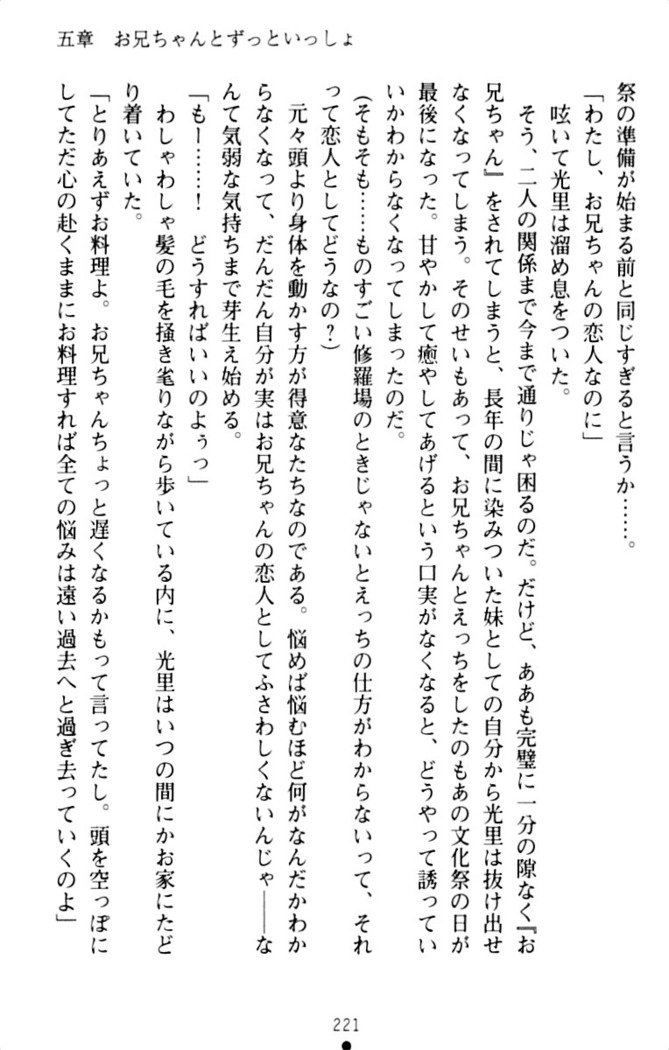 五章　お兄ちゃんとずっといっしょ
祭の準備が始まる前と同じすぎると言うか……。
「わたし、お兄ちゃんの恋人なのに」
　呟いて光里は溜め息をついた。
　そう、二人の関係まで今まで通りじゃ困るのだ。だけど、ああも完璧に一分の隙なく『お
兄ちゃん』をされてしまうと、長年の間に染みついた妹としての自分から光里は抜け出せ
なくなってしまう。そのせいもあって、お兄ちゃんとえっちをしたのもあの文化祭の日が
最後になった。甘やかして癒やしてあげるという口実がなくなると、どうやって誘ってい
いかわからなくなってしまったのだ。
（そもそも……ものすごい修羅場のときじゃないとえっちの仕方がわからないって、それ
って恋人としてどうなの？）
　元々頭より身体を動かす方が得意なたちなのである。悩めば悩むほど何がなんだかわか
らなくなって、だんだん自分が実はお兄ちゃんの恋人としてふさわしくないんじゃ――な
んて気弱な気持ちまで芽生え始める。
「もー……！　どうすればいいのよぅっ」
　わしゃわしゃ髪の毛を掻き毟りながら歩いている内に、光里はいつの間にかお家にたど
り着いていた。
「とりあえずお料理よ。お兄ちゃんちょっと遅くなるかもって言ってたし。頭を空っぽに
してただ心の赴くままにお料理すれば全ての悩みは遠い過去へと過ぎ去っていくのよ」
221